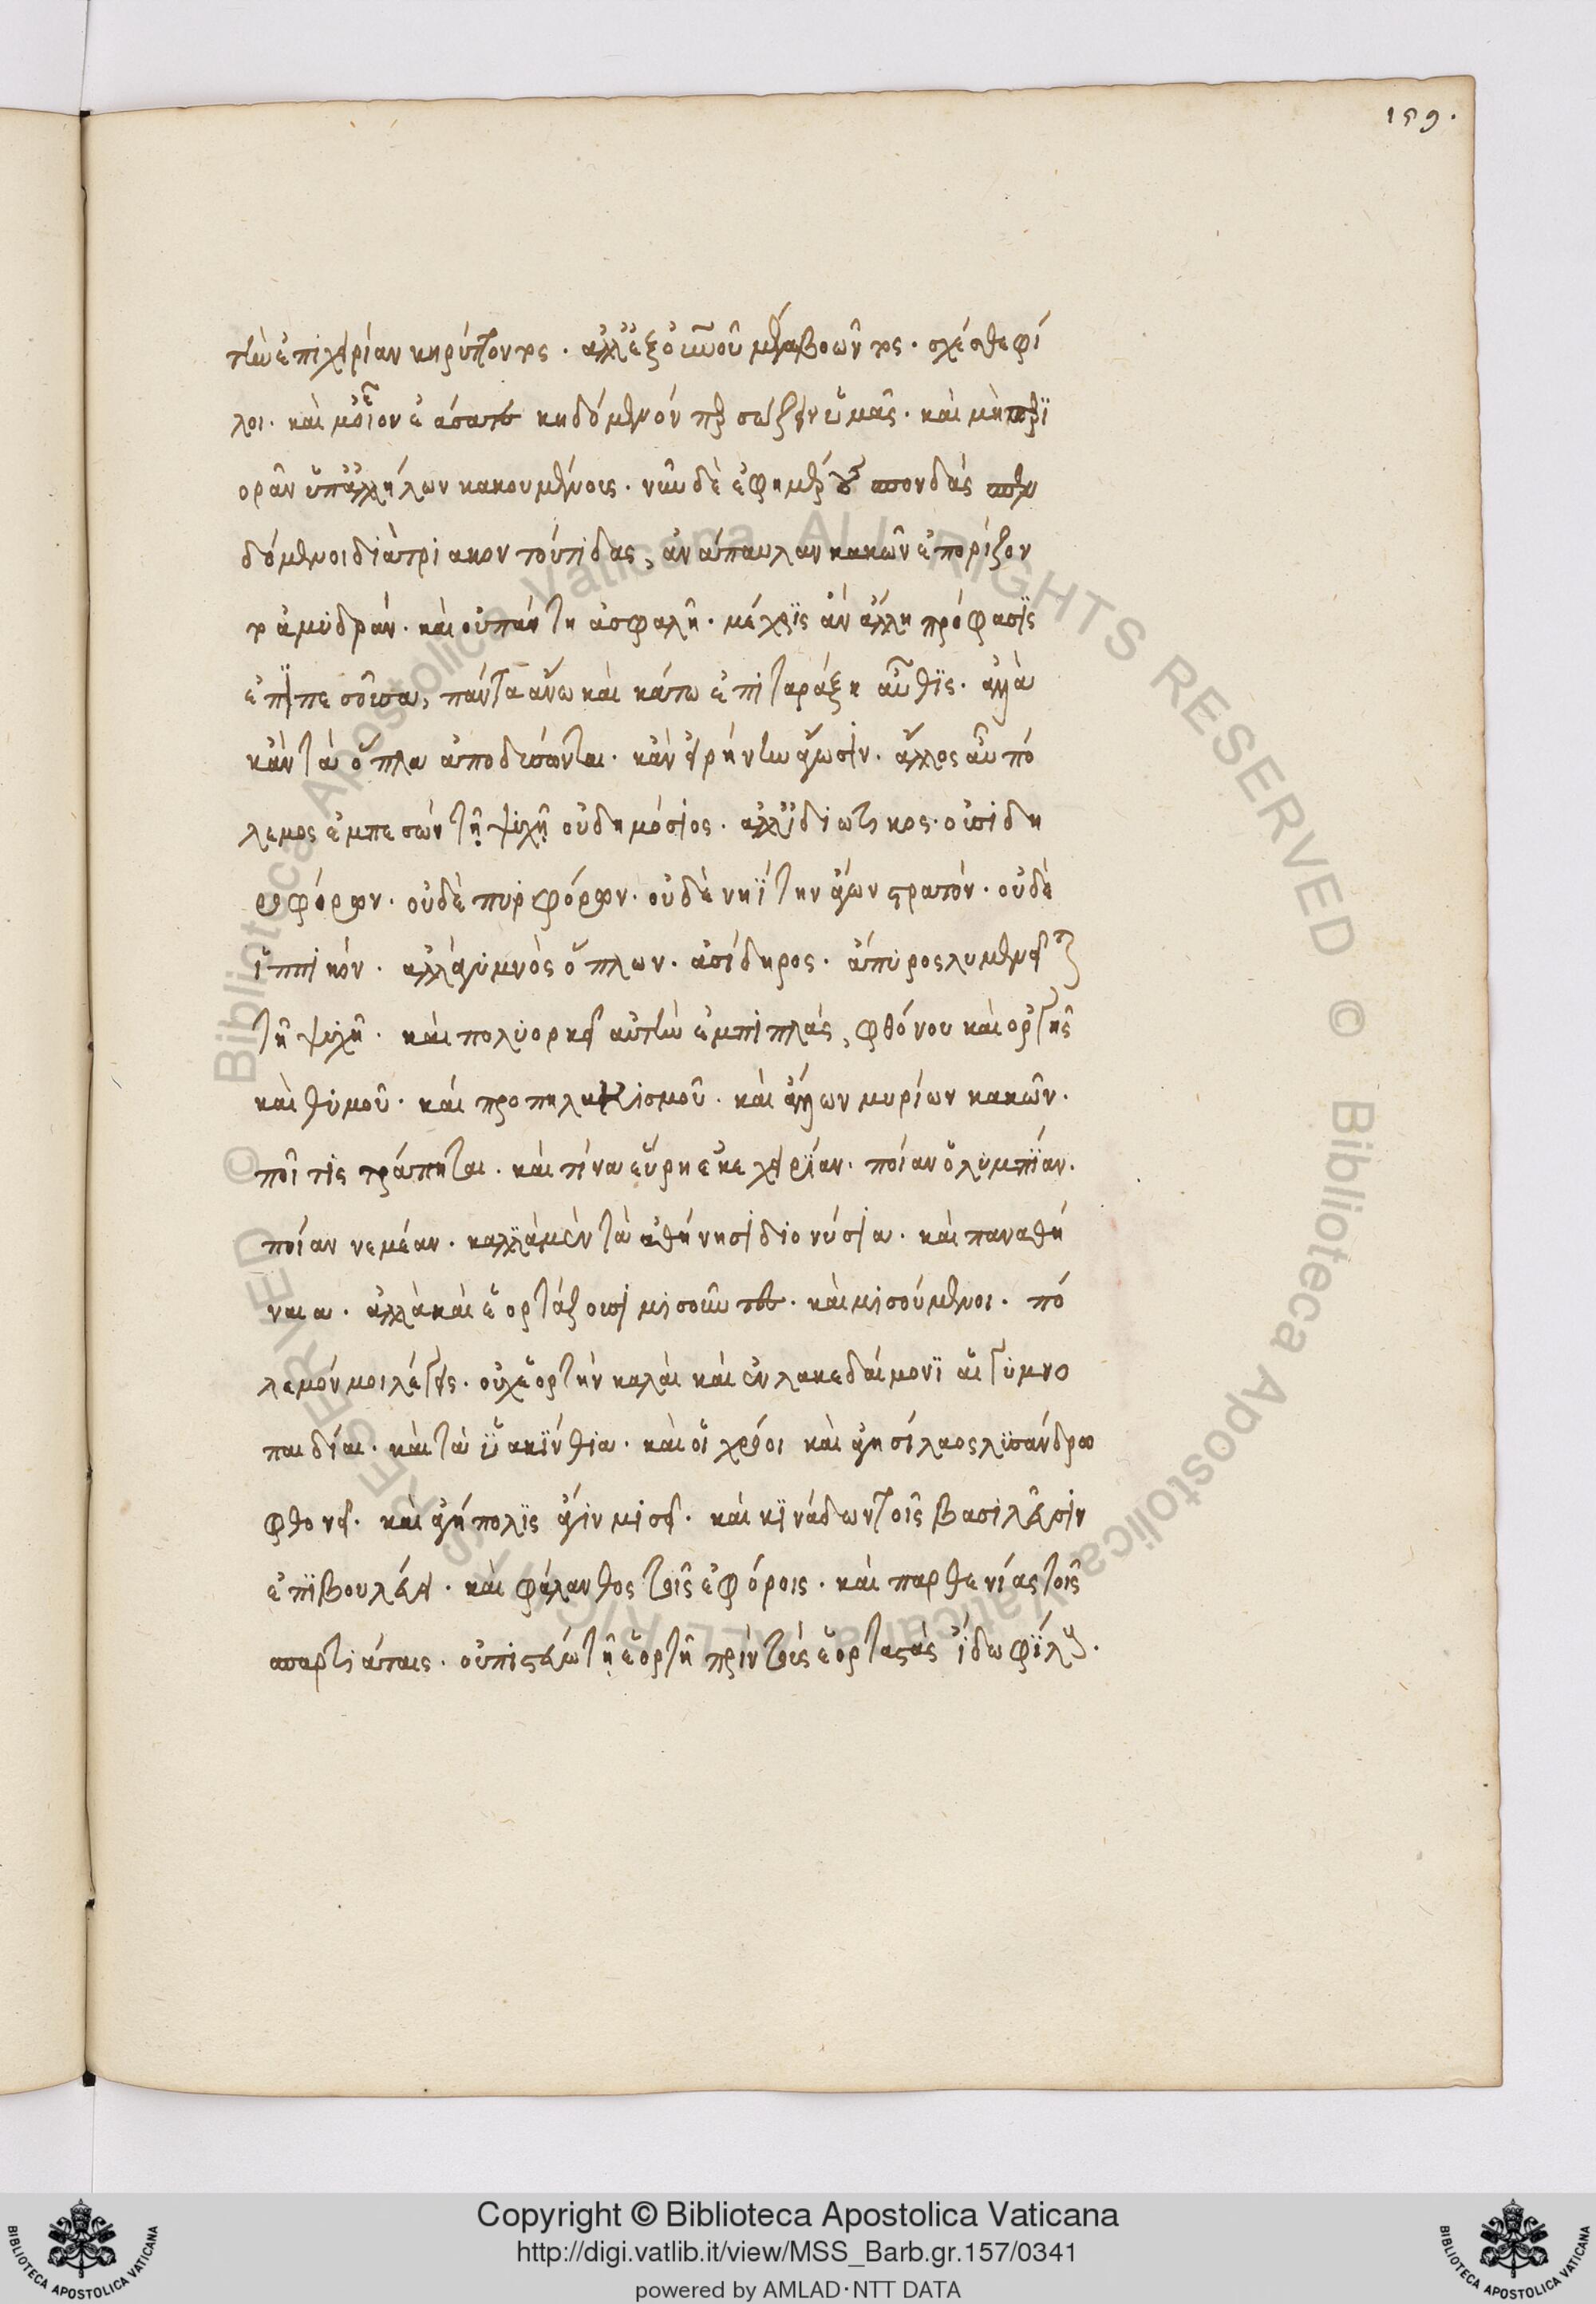 159.
τὴν ἐπιχειρίαν κηρύττοντες. ἀλλ' ἐξ ὀλύμπου μέγα βοῶντες. σχέσθε φί
λοι. καὶ μοῖον ἐάσατε κηδόμενόν περ σώζειν ὑμᾶς. καὶ μὴ περϊ
ορᾶν ὑπ' ἀλλήλων κακουμένους. νῦν δὲ ἐφημέρους σπονδὰς σπεν
δόμενοι διὰ τριακοντούτιδας, ἀνάπαυλαν κακῶν ἐπορίζον
το ἀμυδράν. καὶ οὐ πάντη ἀσφαλῆ. μέχρϊς ἂν ἄλλη πρόφασϊς
ἐπϊπεσοῦσα, πάντα ἄνω καὶ κάτω ἐπιταράξη αὖθϊς. ἀλλὰ
κἂν τὰ ὅπλα ἀποθῶνται. κἂν εἰρήνην ἄγωσιν. ἄλλος αὖ πό
λεμος ἐμπεσὼν τῇ ψυχῇ οὐ δημόσιος. ἀλλ' ἰδιωτικος. οὐ σιδη
ροφόρων. οὐδὲ πυρφόρων. οὐδὲ νηΐτην ἄγων στρατόν. οὐδὲ
ἱππικόν. ἀλλὰ γυμνὸς ὅπλων. ἀσίδηρος. ἄπυρος λυμαίνεται
τῇ ψυχῇ. καὶ πολυορκεῖ αὐτὴν ἐμπιπλὰς, φθόνου καὶ ὀργῆς
καὶ θυμοῦ. καὶ προπηλακισμοῦ. καὶ ἄλλων μυρίων κακῶν.
ποῖ τὶς τράπηται. καὶ τίνα εὕρη ἐκεχειρΐαν. ποίαν ὀλυμπΐαν.
ποίαν νεμέαν. καλλὰ μὲν τὰ ἀθήνησι διονύσια. καὶ παναθή
ναια. ἀλλὰ καὶ ἑορτάζουσι μισοῦντες. καὶ μισούμενοι. πό
λεμόν μοι λέγεις. οὐχ ἑορτὴν καλαὶ καὶ ἐν λακεδαίμονϊ αἱ γυμνο
παιδίαι. καὶ τὰ ὑακΐνθϊα. καὶ οἱ χοροι καὶ ἀγησίλαος λυσάνδρω
φθονεῖ. καὶ ἀγήπολϊς ἄγιν μισεῖ. καὶ κϊνάδων τοῖς βασιλεῦσιν
ἐπϊβουλεύει. καὶ φάλανθος τοῖς ἐφόροις. καὶ παρθενίας τοῖς
σπαρτιάταις. οὐ πιστεύω τῇ ἑορτῇ πρὶν τοὺς ἑορταστὰς ἴδω φϊλους.